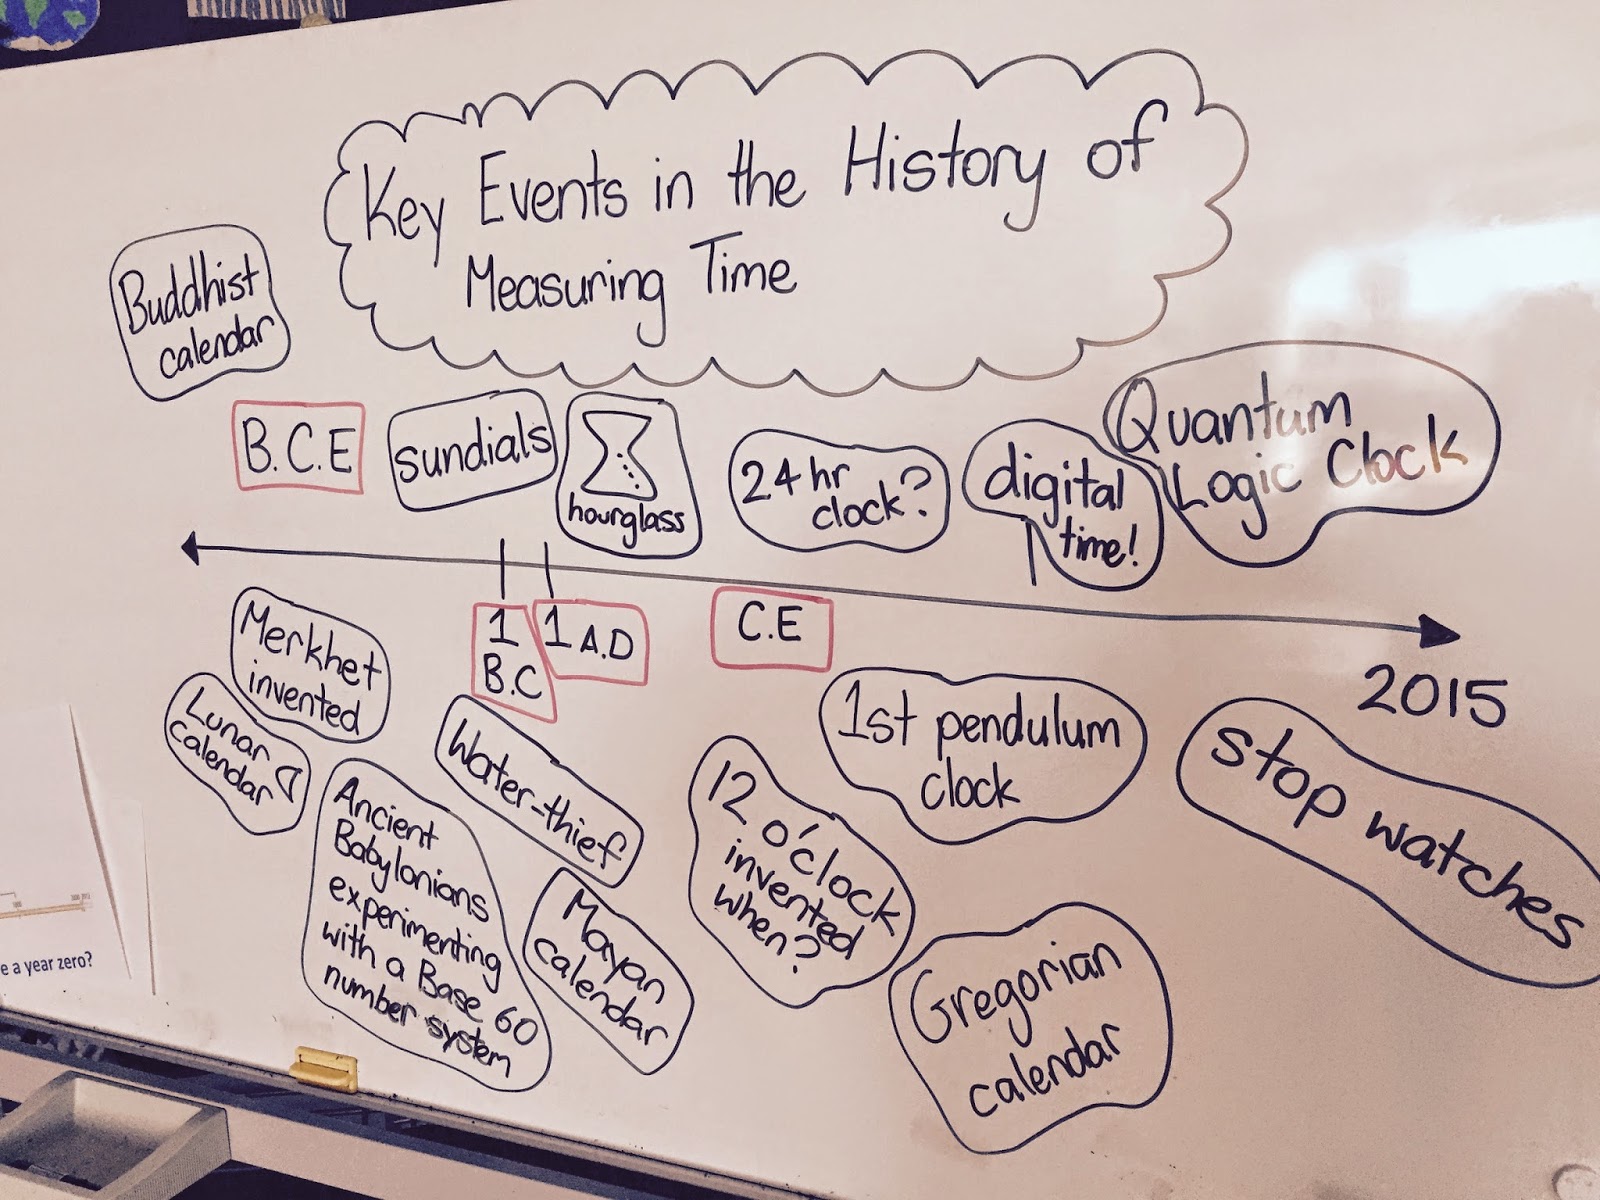 Key Events in the History of
Measuring Time
Buddhist
calendar
B.C.E
sundials
hourglass
24 hr
clock?
digital
time!
Quantum
Logic Clock
1
B.C
1 A.D
C.E
2015
Merkhet
invented
Lunar
calendar
Ancient
Babylonians
experimenting
with a Base 60
number system
Water-thief
Mayan
calendar
12 o'clock
invented
when?
1st pendulum
clock
Gregorian
calendar
stop watches
e a year zero?